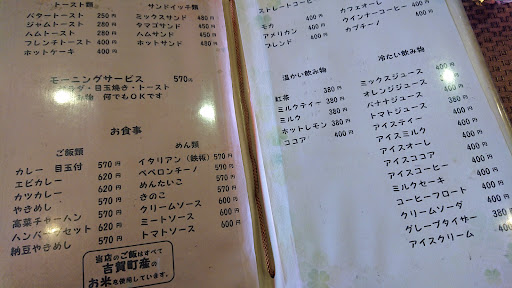 トースト類
バタートースト 250円
ジャムトースト 280円
ハムトースト 280円
フレンチトースト 400円
ホットケーキ 400円
サンドイッチ類
ミックスサンド 480円
タマゴサンド 480円
ハムサンド 480円
ホットサンド 480円
モーニングサービス 570円
サラダ・目玉焼き・トースト
お飲物 何でもOKです
お食事
ご飯類
カレー 目玉付 570円
エビカレー 620円
カツカレー 620円
やきめし 570円
高菜チャーハン 570円
ハンバーグセット 600円
納豆やきめし 570円
めん類
イタリアン(鉄板) 570円
ペペロンチーノ 570円
めんたいこ 570円
きのこ 570円
クリームソース 600円
ミートソース 600円
トマトソース 600円
当店のご飯はすべて
吉賀町産の
お米を使用しています。
ストレートコーヒー
モカ 400円
アメリカン
ブレンド
カフェオーレ 400円
ウインナーコーヒー 400円
カプチーノ 400円
温かい飲み物
紅茶 380円
ミルクティー 380円
ミルク 380円
ホットレモン 380円
ココア 400円
冷たい飲み物
ミックスジュース 400円
オレンジジュース 400円
バナナジュース 400円
トマトジュース 380円
アイスティー 400円
アイスミルク 400円
アイスオーレ 400円
アイスココア 400円
アイスコーヒー 400円
ミルクセーキ 400円
コーヒーフロート 400円
クリームソーダ 400円
グレープタイザー 400円
アイスクリーム 400円